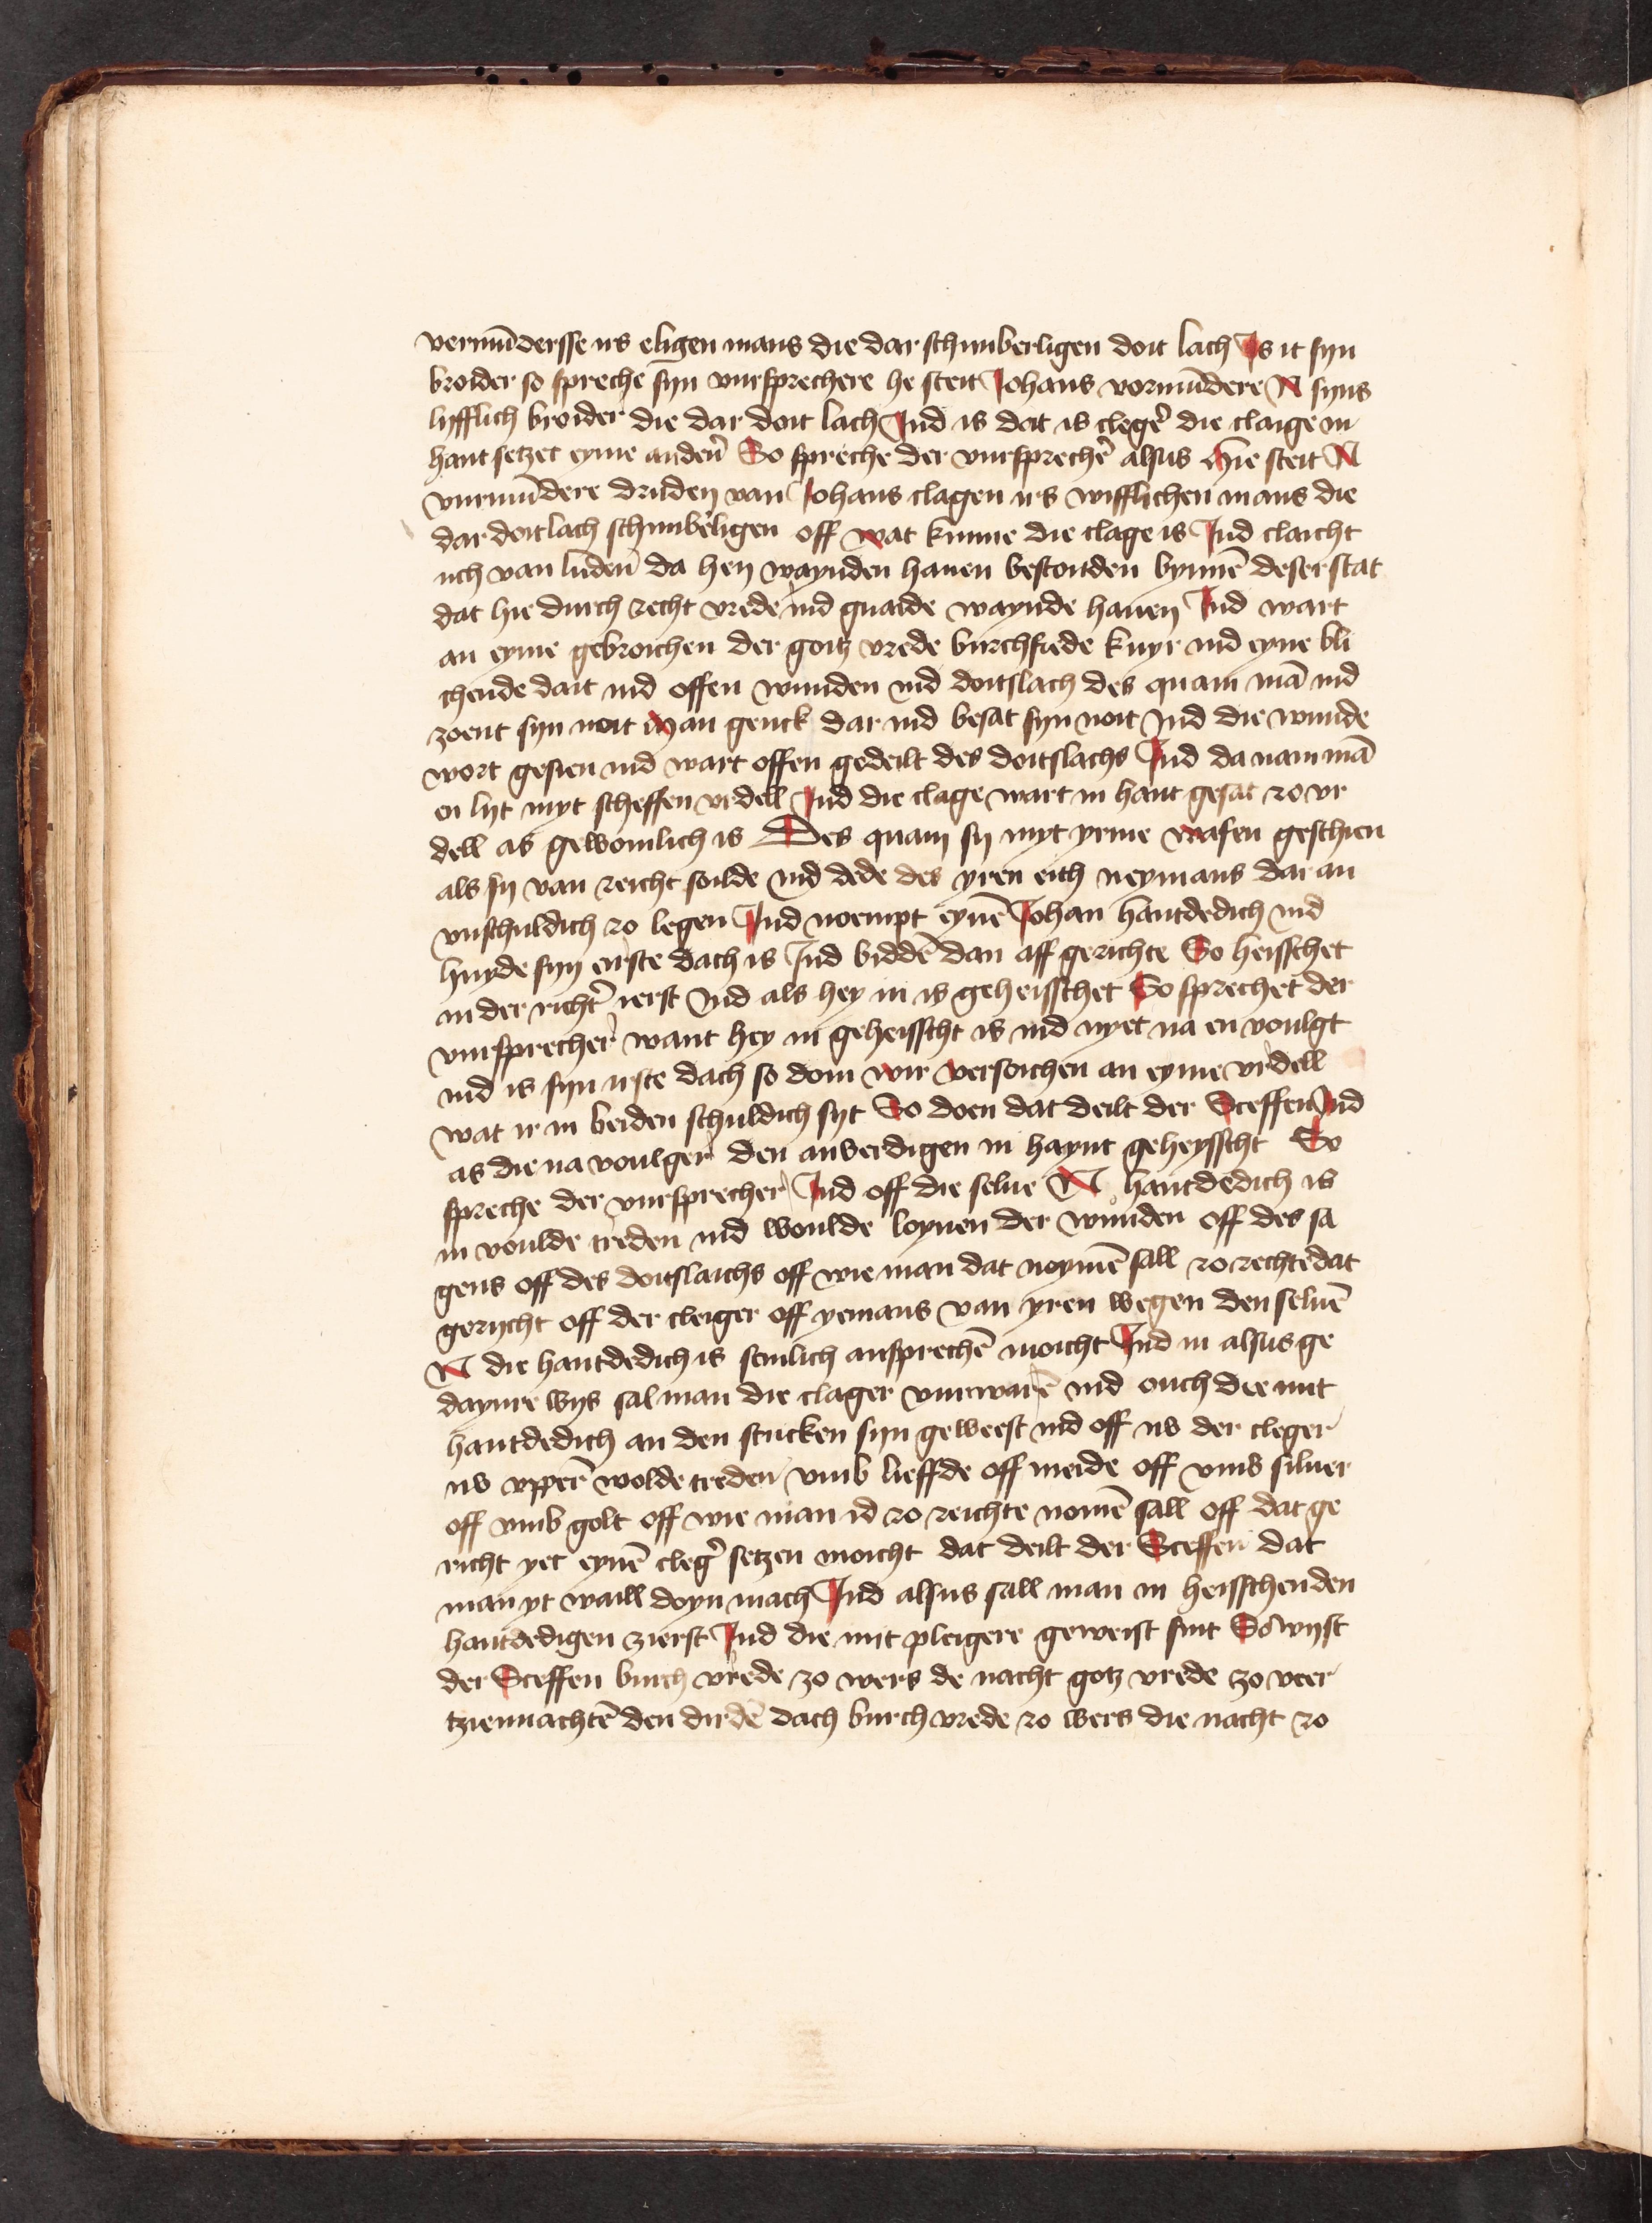 vermūdersse irs eligen mans die dar schinberligen doit lach Is it syn
broider so spreche syn vursprechere he steit Johans vormūdere N syns
lyfflich broider die dar doit lach Ind is dat is cleger̉ die claige in
hant setzet eyme anden̉ So spreche der vursprecher̉ alsus Hie steit N
vurmūdere drudeṅ van Johans clagen irs wifflichen mans die
dar doit lach schinbe̓ligen off wat kunne die clage is Ind claicht
uch van luden̉ da hey waynden hauen bestonden bynnē deser stat
dat hie durch recht vrede ind gnaide waynde haueṅ Ind wart
an eyme gebroichen der gotz vrede burchfrede kuyr ind eyne bli
chende dait ind offen wunden ind doitslach des quam mā ind
zoent syn noit Man genck dar ind besat syn noit Ind die wunde
wort gesien ind wart offen gedeilt des doitslachs Ind da nam mā
ei lyt myt scheffen vrdell Ind die clage wart in hant gesat zo vr
dell as gewonlich is Des quam sy myt yrme wafen geschien
als sy van reicht soulde ind dede des yren eith neymans dar an
vnschuldich zo legen Ind noempt eynē Johan hantdedich ind
huyde syn eirste dach is Ind biddē dan aff gerichte So heisschet
in der richt̉ ierst Ind als hey in is geheisschet So sprechet der
vursprecher̉ want hey in geheisscht is ind nyet na en voulgt
ind is syn irste dach so doin wir versoichen an eyme vrdell
wat ir in beiden schuldich syt So doen dat deilt der Sceffen Ind
as die na voulger̉ den anverdigen in haynt geheysscht So
spreche der vursprecher̉ Ind off die selue N hantdedich is
in voulde treden ind woulde loynen der wunden off des sa
gens off des doitslaichs off wie man dat noymē sall zo rechte dat
gerycht off der cleiger off yemans van yren wegen den seluē
N die hantdedich is semlich ansprechē moicht Ind in alsus ge
daynre wys sal man die clager vurwarē ind ouch die mit
hantdedich an den stucken syn geweest ind off us der cleger
us vpperē wolde treden vmb lieffde off meide off vmb siluer
off vmb golt off wie man id zo reichte nomē sall off dat ge
richt yet eynē cleg̉ setzen moicht dat deilt der Sceffen dat
man yt waill doyn mach Ind alsus sall man in heisschen den
hantdedigen zierst Ind die mit pleigere geweist sint So wyst
der Sceffen burch vrede zo wers de nacht gotz vrede zo veer
tziennachtē den dirdē dach burch vrede zo wers die nacht zo